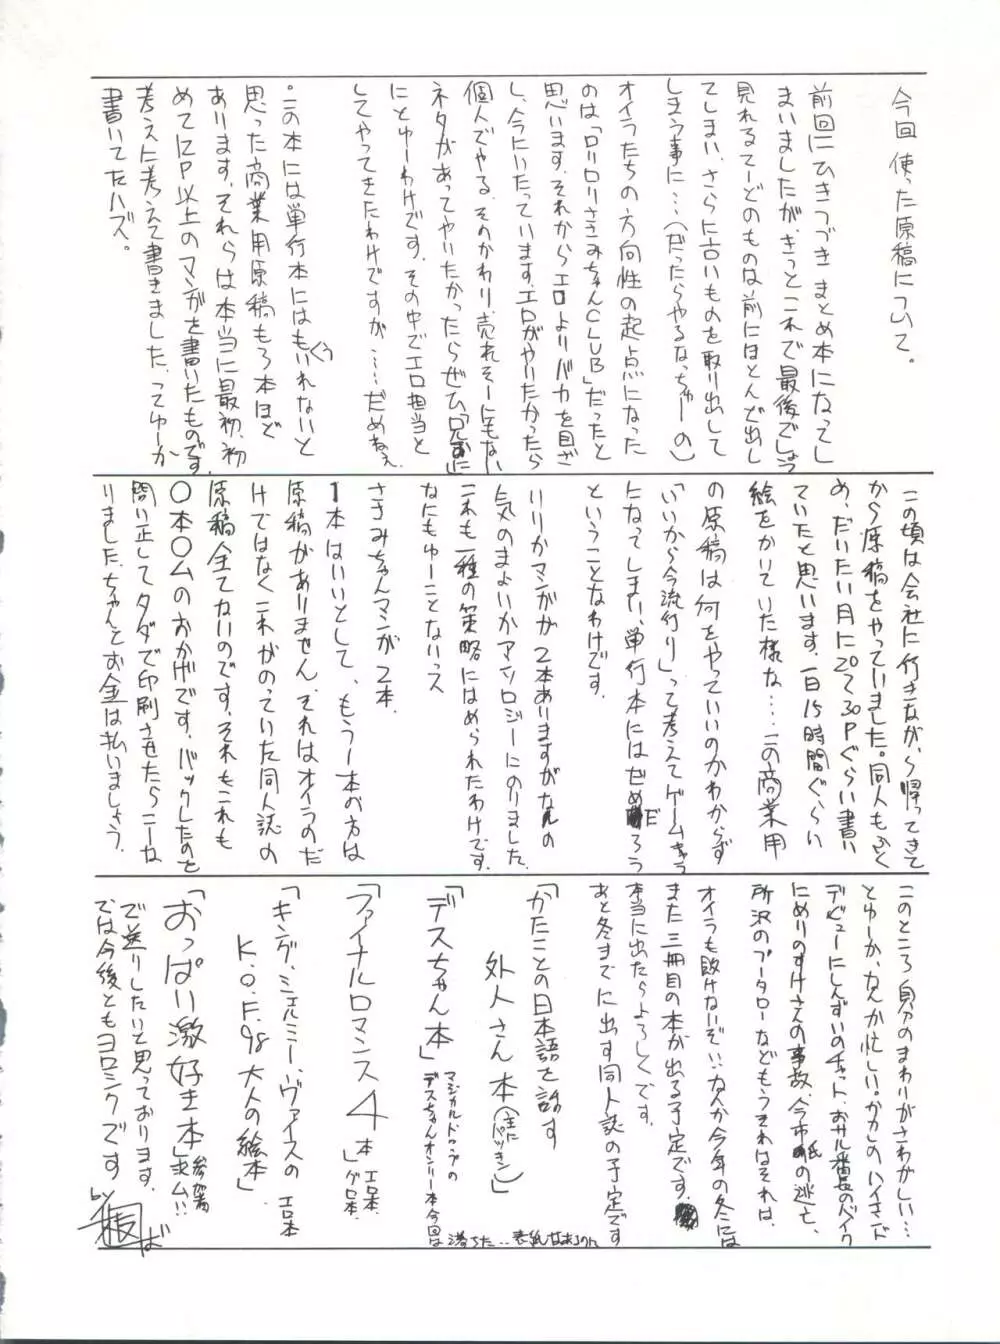 今回使った原稿について。
前回にひきつづきまとめ本になってし
まいましたが、きっとこれで最後でしょう
見れるてーどのものは前にほとんど出し
てしまい、さらに古いものを取り出して
しまう事に…(だったらやるなっちゅーの)
オイラたちの方向性の起点になった
のは「ロリロリささみちゃんCLUB」だったと
思います。それからエロよりバカを目ざ
し、今にいたっています。エロがやりたかったら
個人でやる、そのかわり、売れそーにもない
ネタがあってやりたかったらぜひ兄に
にとゆーわけです。その中でエロ担当と
してやってきたわけですが……だめねぇ
。この本には単行本にはもういれないと
思った商業用原稿も3本ほど
あります。それらは本当に最初、初
めて2P以上のマンガを書いたものです。
考えに考えて書きました、ってゆーか
書いてたハズ。
この頃は会社に行きながら帰ってきて
から原稿をやっていました。同人もふく
め、だいたい月に20〜30Pぐらい書い
ていたと思います。一日15時間ぐらい
絵をかいていた様な……この商業用
の原稿は何をやっていいのかわからず
「いいから今流行り」って考えてゲームキャラ
になってしまい、単行本にはぜめだろう
ということなわけです。
いりかマンガが2本ありますがなんの
気のまよいかアンソロジーにのりました。
これも一種の策略にはめられたわけです。
なにもゆーことないっス
ささみちゃんマンガ2本。
1本はいいとして、もう一本の方は
原稿がありません。それはオイラのだ
けではなくこれがのっていた同人誌の
原稿全てないのです。それもこれも
〇本〇ムのおかげです。バックしたのを
問い正してタダで印刷させたらこーな
りました、ちゃんとお金は払いましょう。
このところ自分のまわりがさわがしい…
とゆーか、なんか忙しい。かかしのハイエンド
デビューにしんずいのチャット、おサル番長のバイク
にめりのすけさんの事故、今市紙の逃亡、
所沢のプータローなどもうそれはそれは、
オイラも改けないぞ!!なんか今年の冬には
また三冊目の本が出る予定です。
本当に出たらよろしくです。
あと冬までに出す同人誌の予定です
「かたことの日本語を話す
外人さん本(主にパツキン)」
「デスちゃん本」マジカルドロップの
デスちゃんオンリー本今回は
落ちた‥表紙はあるのに
「ファイナルロマンス4本」エロ本、グロ本。
「キング、シェルミー、ヴァイスのエロ本
K.O.F.98大人の絵本」
「おっぱい激好き本」参加者求ム!!
で送りしたいと思っております。
では今後ともヨロシクです
by